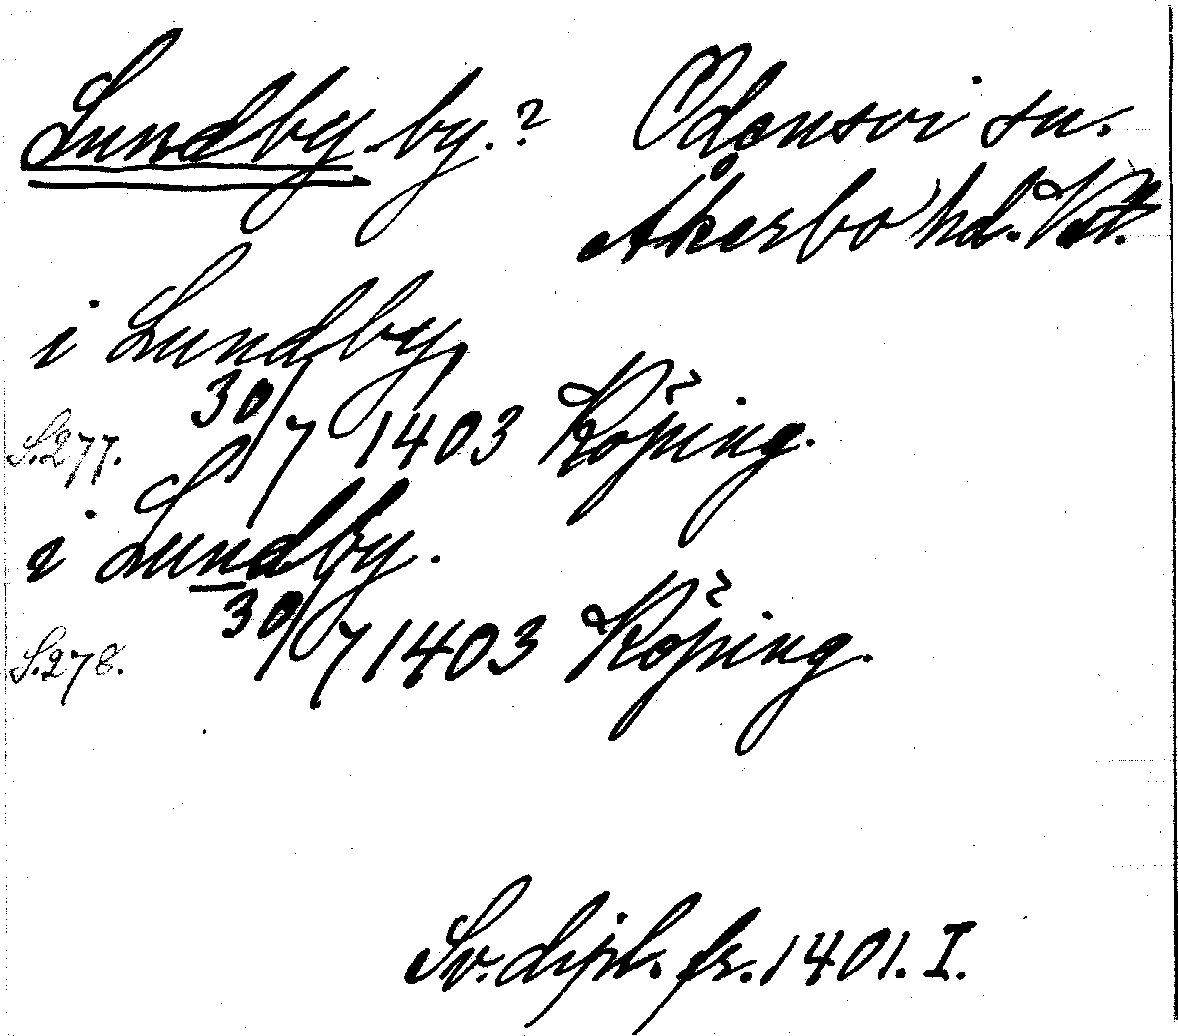 Lundby by.? Odensvi sn.
Åkerbo hd. Vstm.
i Lundby,
S. 277. 30/7 1403 Köping.
i Lundby.
S. 278. 30/7 1403 Köping.
Sv. dipl. fr. 1401. I.